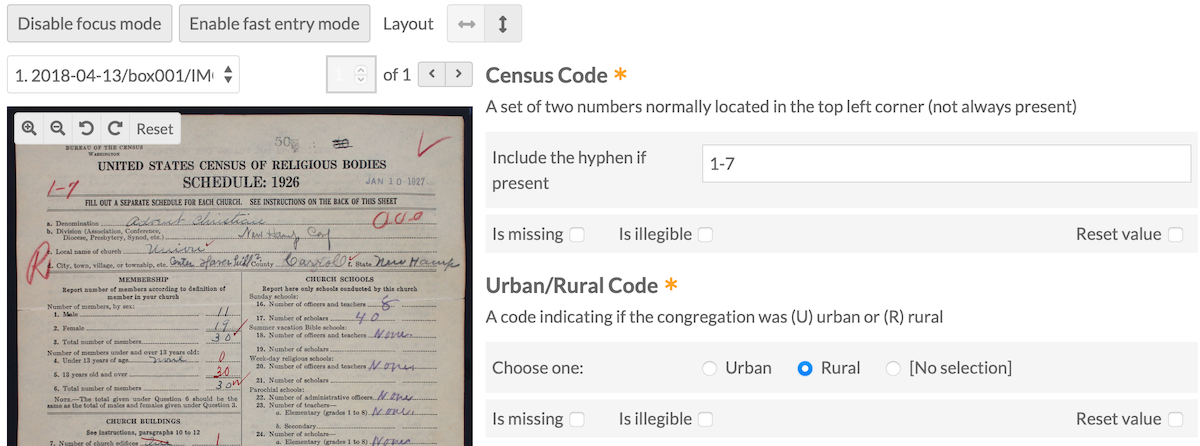 Disable focus mode Enable fast entry mode Layout
1. 2018-04-13/box001/IM 1 of 1
Reset
BUREAU OF THE CENSUS
WASHINGTON
UNITED STATES CENSUS OF RELIGIOUS BODIES
SCHEDULE: 1926
JAN 10 1927
1-7
FILL OUT A SEPARATE SCHEDULE FOR EACH CHURCH. SEE INSTRUCTIONS ON THE BACK OF THIS SHEET
a. Denomination Advent Christian
b. Division (Association, Conference,
Diocese, Presbytery, Synod, etc.) New Hamp Conf
c. Local name of church Union
R
d. City, town, village, or township, etc. Center Haverhill County Carroll State New Hamp
MEMBERSHIP
Report number of members according to definition of
member in your church
Number of members, by sex:
1. Male 11
2. Female 19
3. Total number of members 30
Number of members under and over 13 years old:
4. Under 13 years of age none 0
5. 13 years old and over 30
6. Total number of members 30
NOTE.—The total given under Question 6 should be the
same as the total of males and females given under Question 3.
CHURCH BUILDINGS
See instructions, paragraphs 10 to 12
7. Number of church edifices 1
CHURCH SCHOOLS
Report here only schools conducted by this church
Sunday schools:
16. Number of officers and teachers 8
17. Number of scholars 40
Summer vacation Bible schools:
18. Number of officers and teachers None
19. Number of scholars
Week-day religious schools:
20. Number of officers and teachers None
21. Number of scholars
Parochial schools:
22. Number of administrative officers None
23. Number of teachers—
a. Elementary (grades 1 to 8) None
b. Secondary
24. Number of scholars—
a. Elementary (grades 1 to 8) None
Census Code *
A set of two numbers normally located in the top left corner (not always present)
Include the hyphen if
present
1-7
Is missing Is illegible Reset value
Urban/Rural Code *
A code indicating if the congregation was (U) urban or (R) rural
Choose one: Urban Rural [No selection]
Is missing Is illegible Reset value